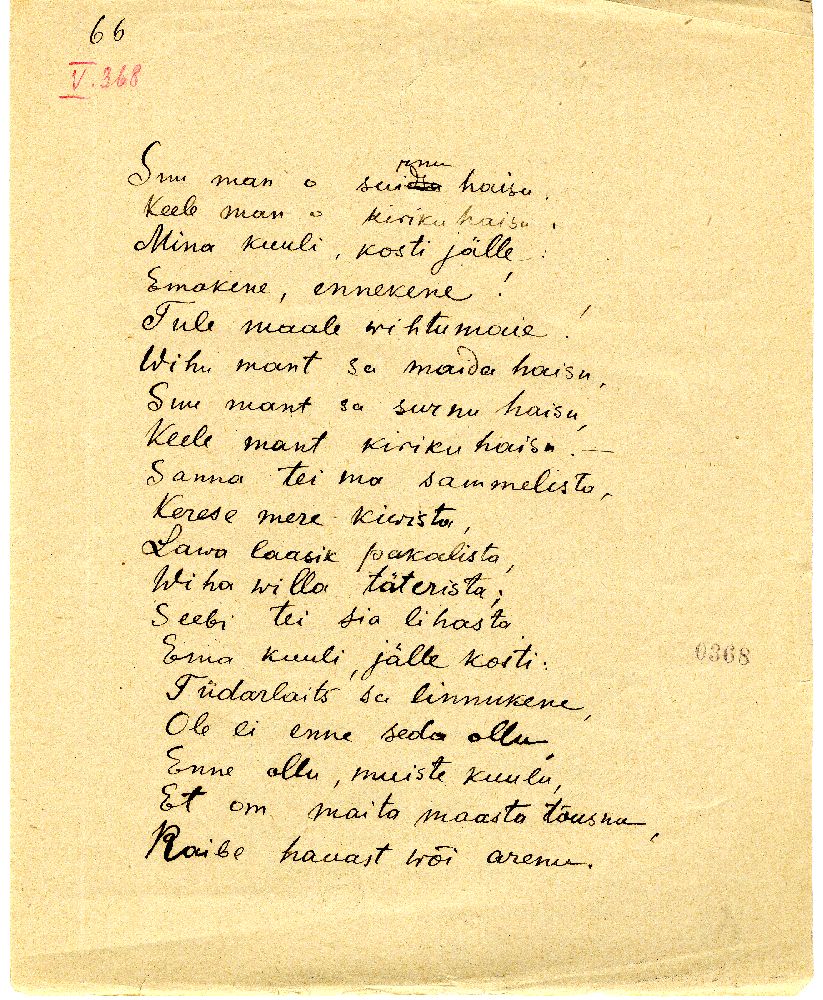 66
V. 368
Suu man o surnu haisu.
Keele man o kiriku haisu.
Mina kuuli, kosti jälle:
Emakene, ennekene!
Tule maale wihtumaie!
Wihu mant sa maida haisu,
Suu mant sa surnu haisu,
Keele mant kiriku haisu. —
Sanna tei ma sammelista,
Kerese mere kiwista,
Lawa laasik pakalista,
Wiha willa täterista;
Seebi tei sia lihasta
Ema kuuli, jälle kosti:
Tüdarlaits sa linnukene,
Ole ei enne seda ollu,
Enne ollu, muiste kuulu,
Et om maita maasta tõusnu,
Raibe hauast wõi arenu.
0368